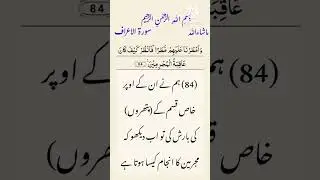 بسم اللہ الرحمٰن الرحیم
ماشاءاللہ
سورۃ الاعراف
وَاَمْطَرْنَا عَلَیْهِمْ مَّطَرًا فَانْظُرْ كَیْفَ كَانَ
عَاقِبَةُ الْمُجْرِمِیْنَ
(84) ہم نے ان کے اوپر
خاص قسم کے (پتھروں)
کی بارش کی تو اب دیکھو کہ
مجرمین کا انجام کیسا ہوتا ہے